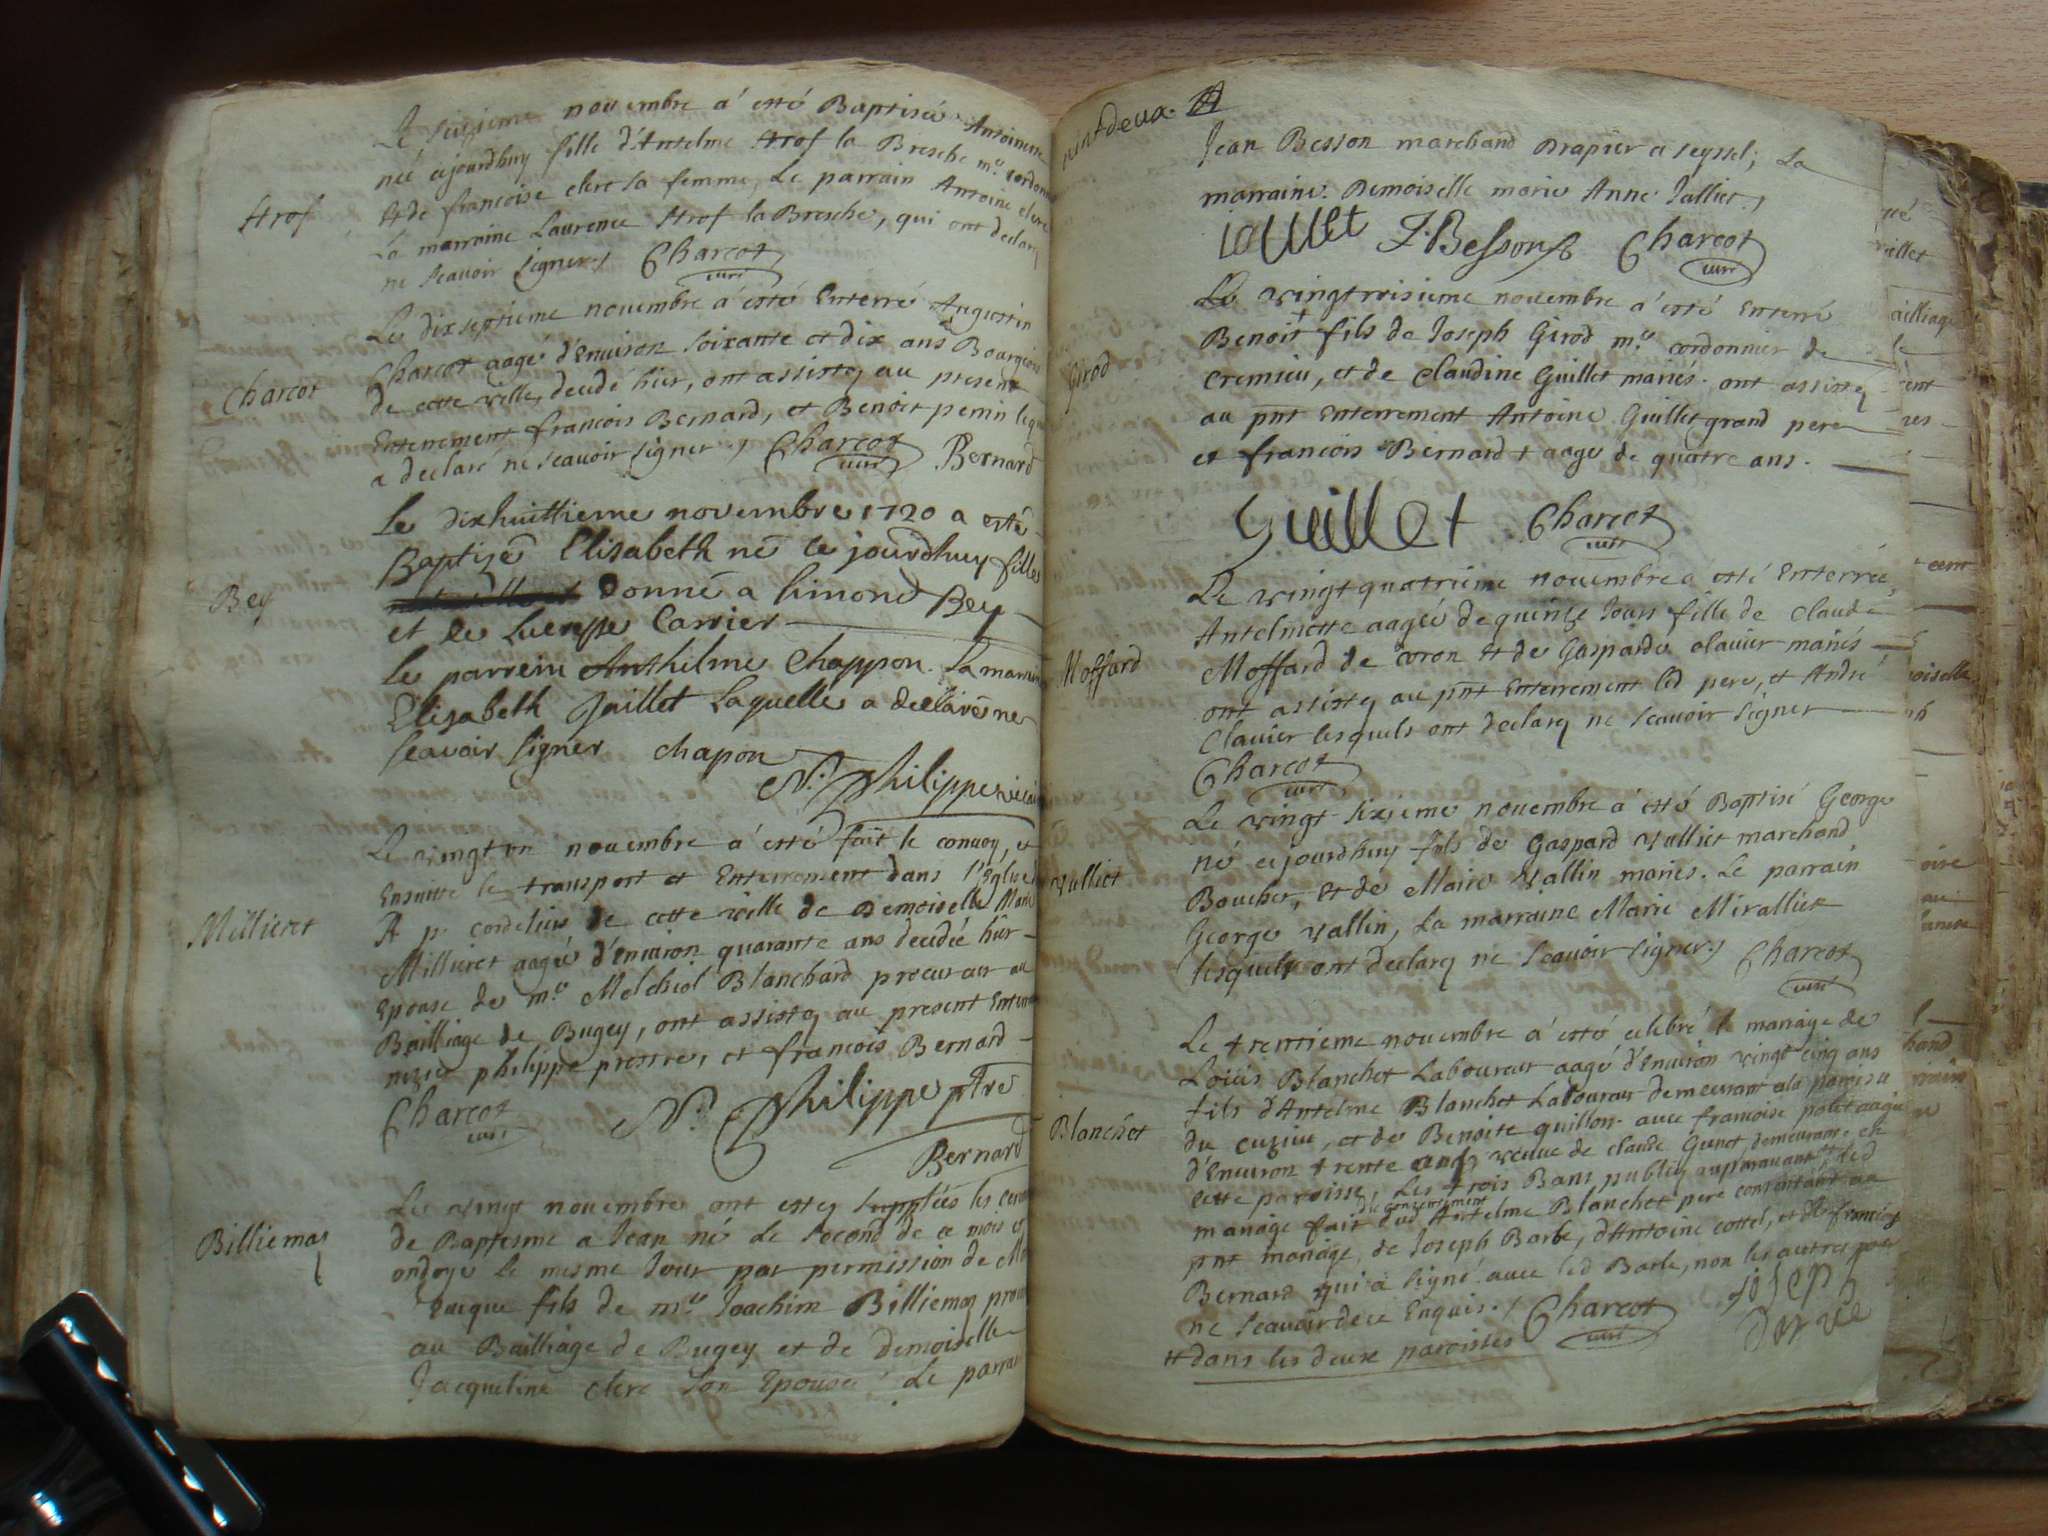 Le seizieme novembre a' esté Baptisée Antoinette
née cejourdhuy fille d'Antelme Strof la Bresche m.e cordonn
Strof
Et de francoise clerc sa femme, Le parrain Antoine clerc
La marraine Laurence Strof la Bresche, qui ont declarez
ne Scavoir signer ./ Charcot
curé
Le dix septieme novembre a' esté Enterré Augustin
Charcot
Charcot aagé d'Environ soixante et dix ans Bourgeois
de cette ville, decedé hier, ont assistez au present
Enterrement francois Bernard, et Benoit perrin lequ
a declaré ne Scavoir signer ./ Charcot Bernard
curé
Le dixhuittieme novembre 1720 a esté
Baptizé Elisabeth né ce jourdhuy fille
Bey
donné a Simond Bey
et de Carrier
Le parrein Anthilme Chappon. La marrein
Elizabeth Jaillet Laquelle a declaré ne
scavoir signer chapon
N. Philippe vicaire
Le vingt un novembre a' esté fait le convoy, et
Ensuitte le transport et Enterrement dans l'Eglise d
R. p. cordeliers de cette ville de Demoiselle Marie
Millieret
Millieret aagée d'Environ quarante ans decedée hier
Epouse de m.e Melchiol Blanchard procureur au
Bailliage de Bugey, ont assistez au present Enterrem
nizier philippe prestre, et francois Bernard
Charcot N. Philippe ptre
curé
Bernard
Le vingt novembre ont estez suppléés les cerem
Billiemaz
de Baptesme a Jean né le second de ce mois et
ondoyé Le mesme Jour par permission de M
Eveque fils de m.e Joachim Billiemaz procu
au Bailliage de Bugey et de Demoiselle
Jacqueline clerc son Epouse Le parrain
vint deux.
Jean Besson marchand Drapier a seyssel; La
marraine. Demoiselle marie Anne Jalliet ./
Jalliet J. Besson Charcot
curé
Le vingtroisieme novembre a' esté Enterré
Benoit + fils de Joseph Girod m.e cordonnier de
Girod
Cremieu, et de Claudine Guillet mariés. ont assistez
au pnt Enterrement Antoine Guillet grand pere
et francois Bernard + aagé de quatre ans.
Guillet Charcot
curé
Le vingt quatrieme novembre a' esté Enterrée
Antelmette aagée de quinze Jours fille de Claude
Moffard
Moffard de coron Et de Gasparde clavier mariés
ont assistez au pnt Enterrement led pere, et André
Clavier lesquels ont declarez ne scavoir signer
Charcot
curé
Le vingt sixieme novembre a' esté Baptisé George
né cejourdhuy fils de Gaspard Vulliet marchand
Vulliet
Boucher, Et de Marie Vallin mariés. Le parrain
George Vallin, La marraine Marie Mirallier
lesquels ont declarez ne Scavoir signer ./ Charcot
curé
Le trentieme novembre a' esté celebré le mariage de
Loüis Blanchet Laboureur aagé d'Environ vingt cinq ans
fils d'Antelme Blanchet Laboureur demeurant a la paroisse
Blanchet
du cuzieu, et de Benoite quillon. avec francoise polet aagée
d'Environ trente ans, veuve de claude Gunet demeurant en
cette paroisse, Les trois Bans publiez auparavant tt led
du consentement
mariage fait dud Antelme Blanchet pere consentant au
pnt mariage, de Joseph Barbe, d'Antoine cottel, et de francois
Bernard qui a signé avec led Barbe, non les autres pour
ne Scavoir de ce Enquis ./ Charcot joseph
curé
tt dans les deux paroisses